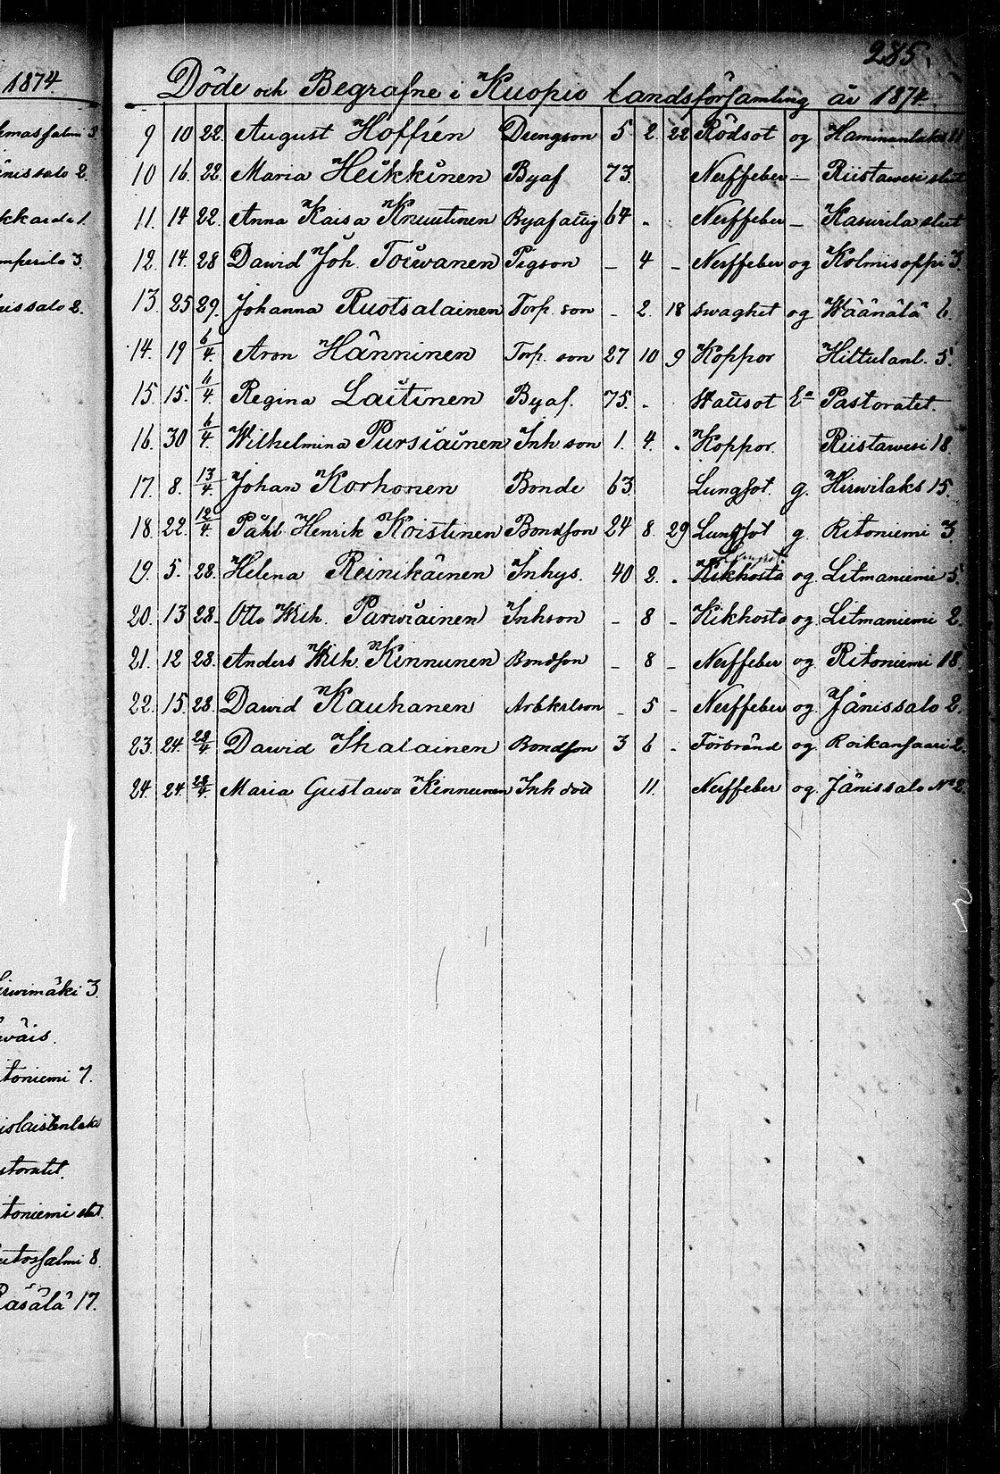 285.
1874
Döde och Begrafne i Kuopio landsförsamling år 1874
9 10 22. August Hoffrén Drengson 5. 2. 22 Rödsot og Haminanlaks 11
10 16. 22. Maria Heikkinen Byaf 73. Nerffeber — Riistawesi slut
11. 14 22. Anna Kaisa Knuutinen Byaf 64 - Nerffeber — Kasurila slut
12. 14. 28 Dawid Joh. Toiwanen Pigson - 4 - Nerffeber og Kolmisoppi 3.
13. 25 29. Johanna Ruotsalainen Torp. son - 2. 18 swaghet og Wäänälä 6.
14. 19 6/4. Aron Hänninen Torp. son 27 10 9 Koppor Hiltulanl. 5.
15. 15. 6/4 Regina Laitinen Byaf. 75. - Wattusot Ea Pastoratet.
16. 30 6/4. Wilhelmina Pursiainen Inh son 1. 4. - Koppor. Riistawesi 18.
17. 8. 13/4 Johan Korhonen Bonde 63 Lungsot. g. Hirwilaks 15.
18. 22. 12/4. Påhl Henrik Kristinen Bondson 24 8. 29 Lungsot g. Ritoniemi 3.
19. 5. 28. Helena Reinikainen Inhys. 40 2. - Kikhosta og Litmaniemi 5.
20. 13 28. Otto Wilh. Parwiainen Inhson - 8 - Kikhosta og Litmaniemi 2.
21. 12 28. Anders Wilh. Kinnunen Bondson - 8 - Nerffeber og Ritoniemi 18.
22. 15. 28. Dawid Kauhanen Arbkarlson - 5 - Nerffeber og. Jänissalo 2.
23. 24. 28/4 Dawid Ihalainen Bondson 3 6 - Förbränd og. Roikansaari 2.
24. 24. 28/4. Maria Gustawa Kinnunen Inh dott 11. Nerffeber og. Jänissalo No 2.
3.
2.
1.
3.
2.
irwimäki 3.
wäis.
toniemi 7.
toniemi slut.
8.
Räsälä 17.